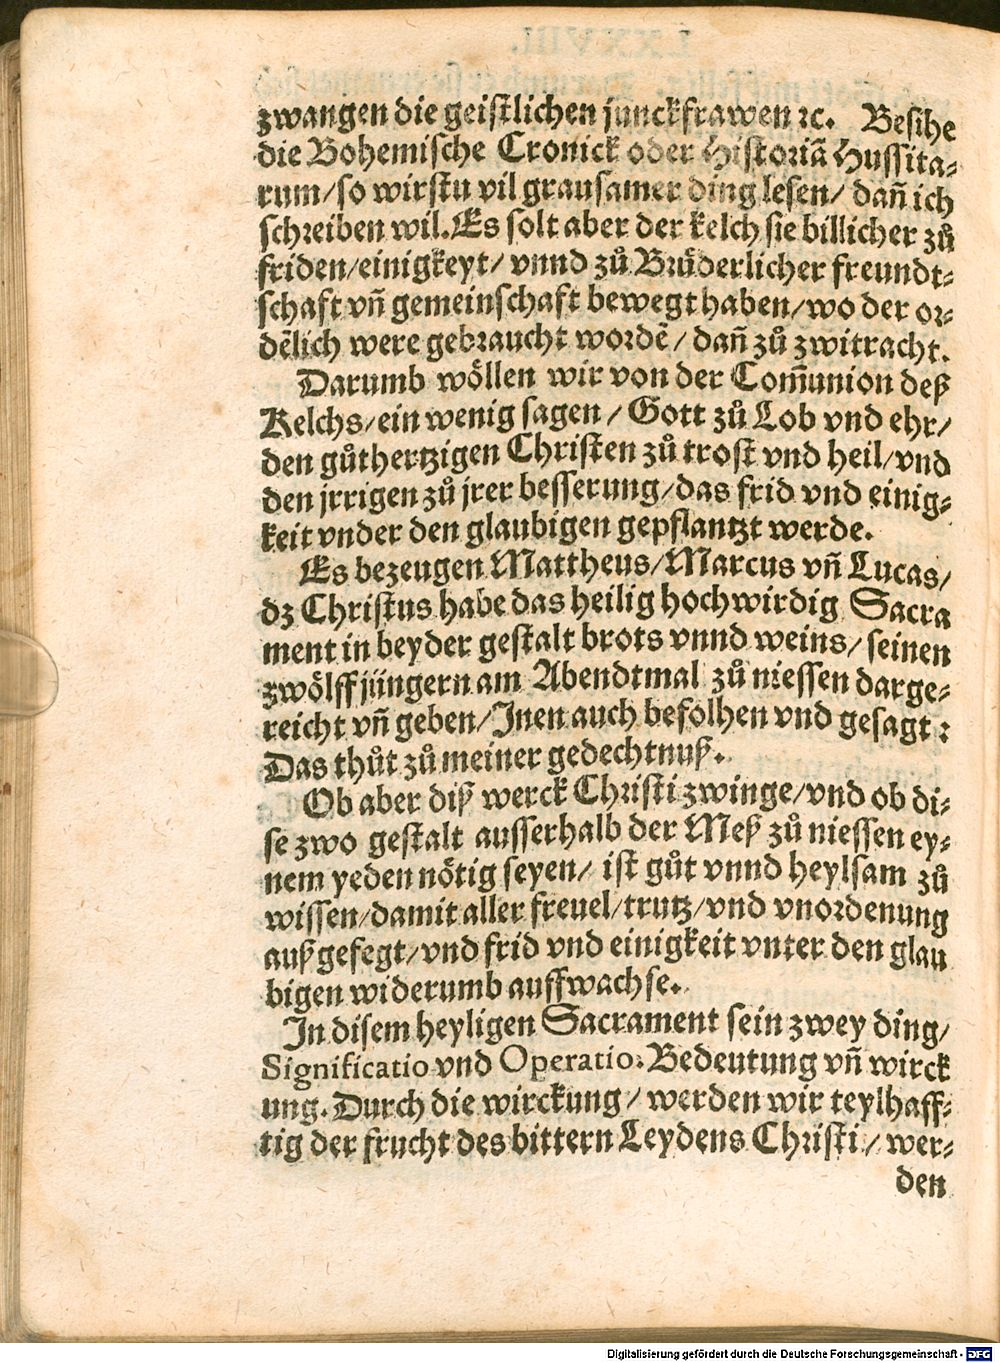 zwangen die geiſtlichen junckfrawen ꝛc. Beſihe
die Bohemiſche Cronick oder Hiſtoriã Huſſita⸗
rum/ſo wirſtu vil grauſamer ding leſen/ dañ ich
ſchreiben wil. Es ſolt aber der kelch ſie billicher zů
friden/einigkeyt/ vnnd zů Brůderlicher freundt⸗
ſchaft vñ gemeinſchaft bewegt haben/wo der or⸗
dẽlich were gebraucht wordẽ/ dañ zů zwitracht.
Darumb wöllen wir von der Com̃union deß
Kelchs/ein wenig ſagen/ Gott zů Lob vnd ehr/
den gůthertzigen Chriſten zů troſt vnd heil/vnd
den jrrigen zů jrer beſſerung/das frid vnd einig⸗
keit vnder den glaubigen gepflantzt werde.
Es bezeugen Mattheus/Marcus vñ Lucas/
dz Chriſtus habe das heilig hochwirdig Sacra
ment in beyder geſtalt brots vnnd weins/ ſeinen
zwölff jüngern am Abendtmal zů nieſſen darge⸗
reicht vñ geben/Jnen auch befolhen vnd geſagt:
Das thůt zů meiner gedechtnuß.
Ob aber diß werck Chriſti zwinge/vnd ob di⸗
ſe zwo geſtalt auſſerhalb der Meß zů nieſſen ey⸗
nem yeden nötig ſeyen/ iſt gůt vnnd heylſam zů
wiſſen/damit aller freuel/trutz/vnd vnordenung
außgefegt/vnd frid vnd einigkeit vnter den glau
bigen widerumb auffwachſe.
Jn diſem heyligen Sacrament ſein zwey ding/
Significatio vnd Operatio. Bedeutung vñ wirck
ung. Durch die wirckung/ werden wir teylhaff⸗
tig der frucht des bittern Leydens Chriſti/ wer⸗
den
Digitalisierung gefördert durch die Deutsche Forschungsgemeinschaft - DFG